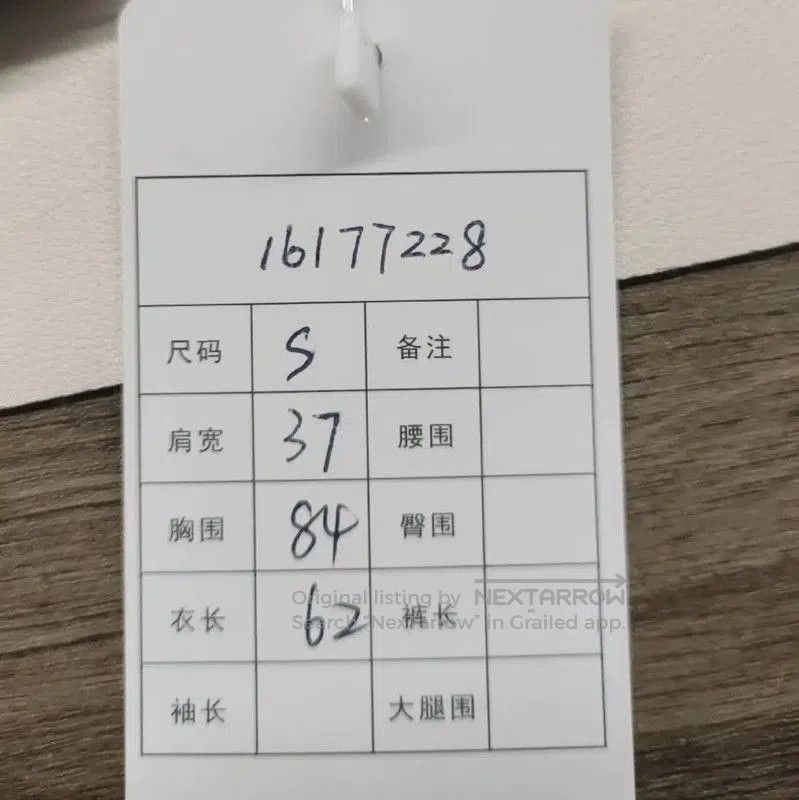 16177228
尺码 S 备注
肩宽 37 腰围
胸围 84 臀围
Original listing by NEXTARROW
衣长 62 裤长
Search "NextArrow" in Grailed app.
袖长 大腿围